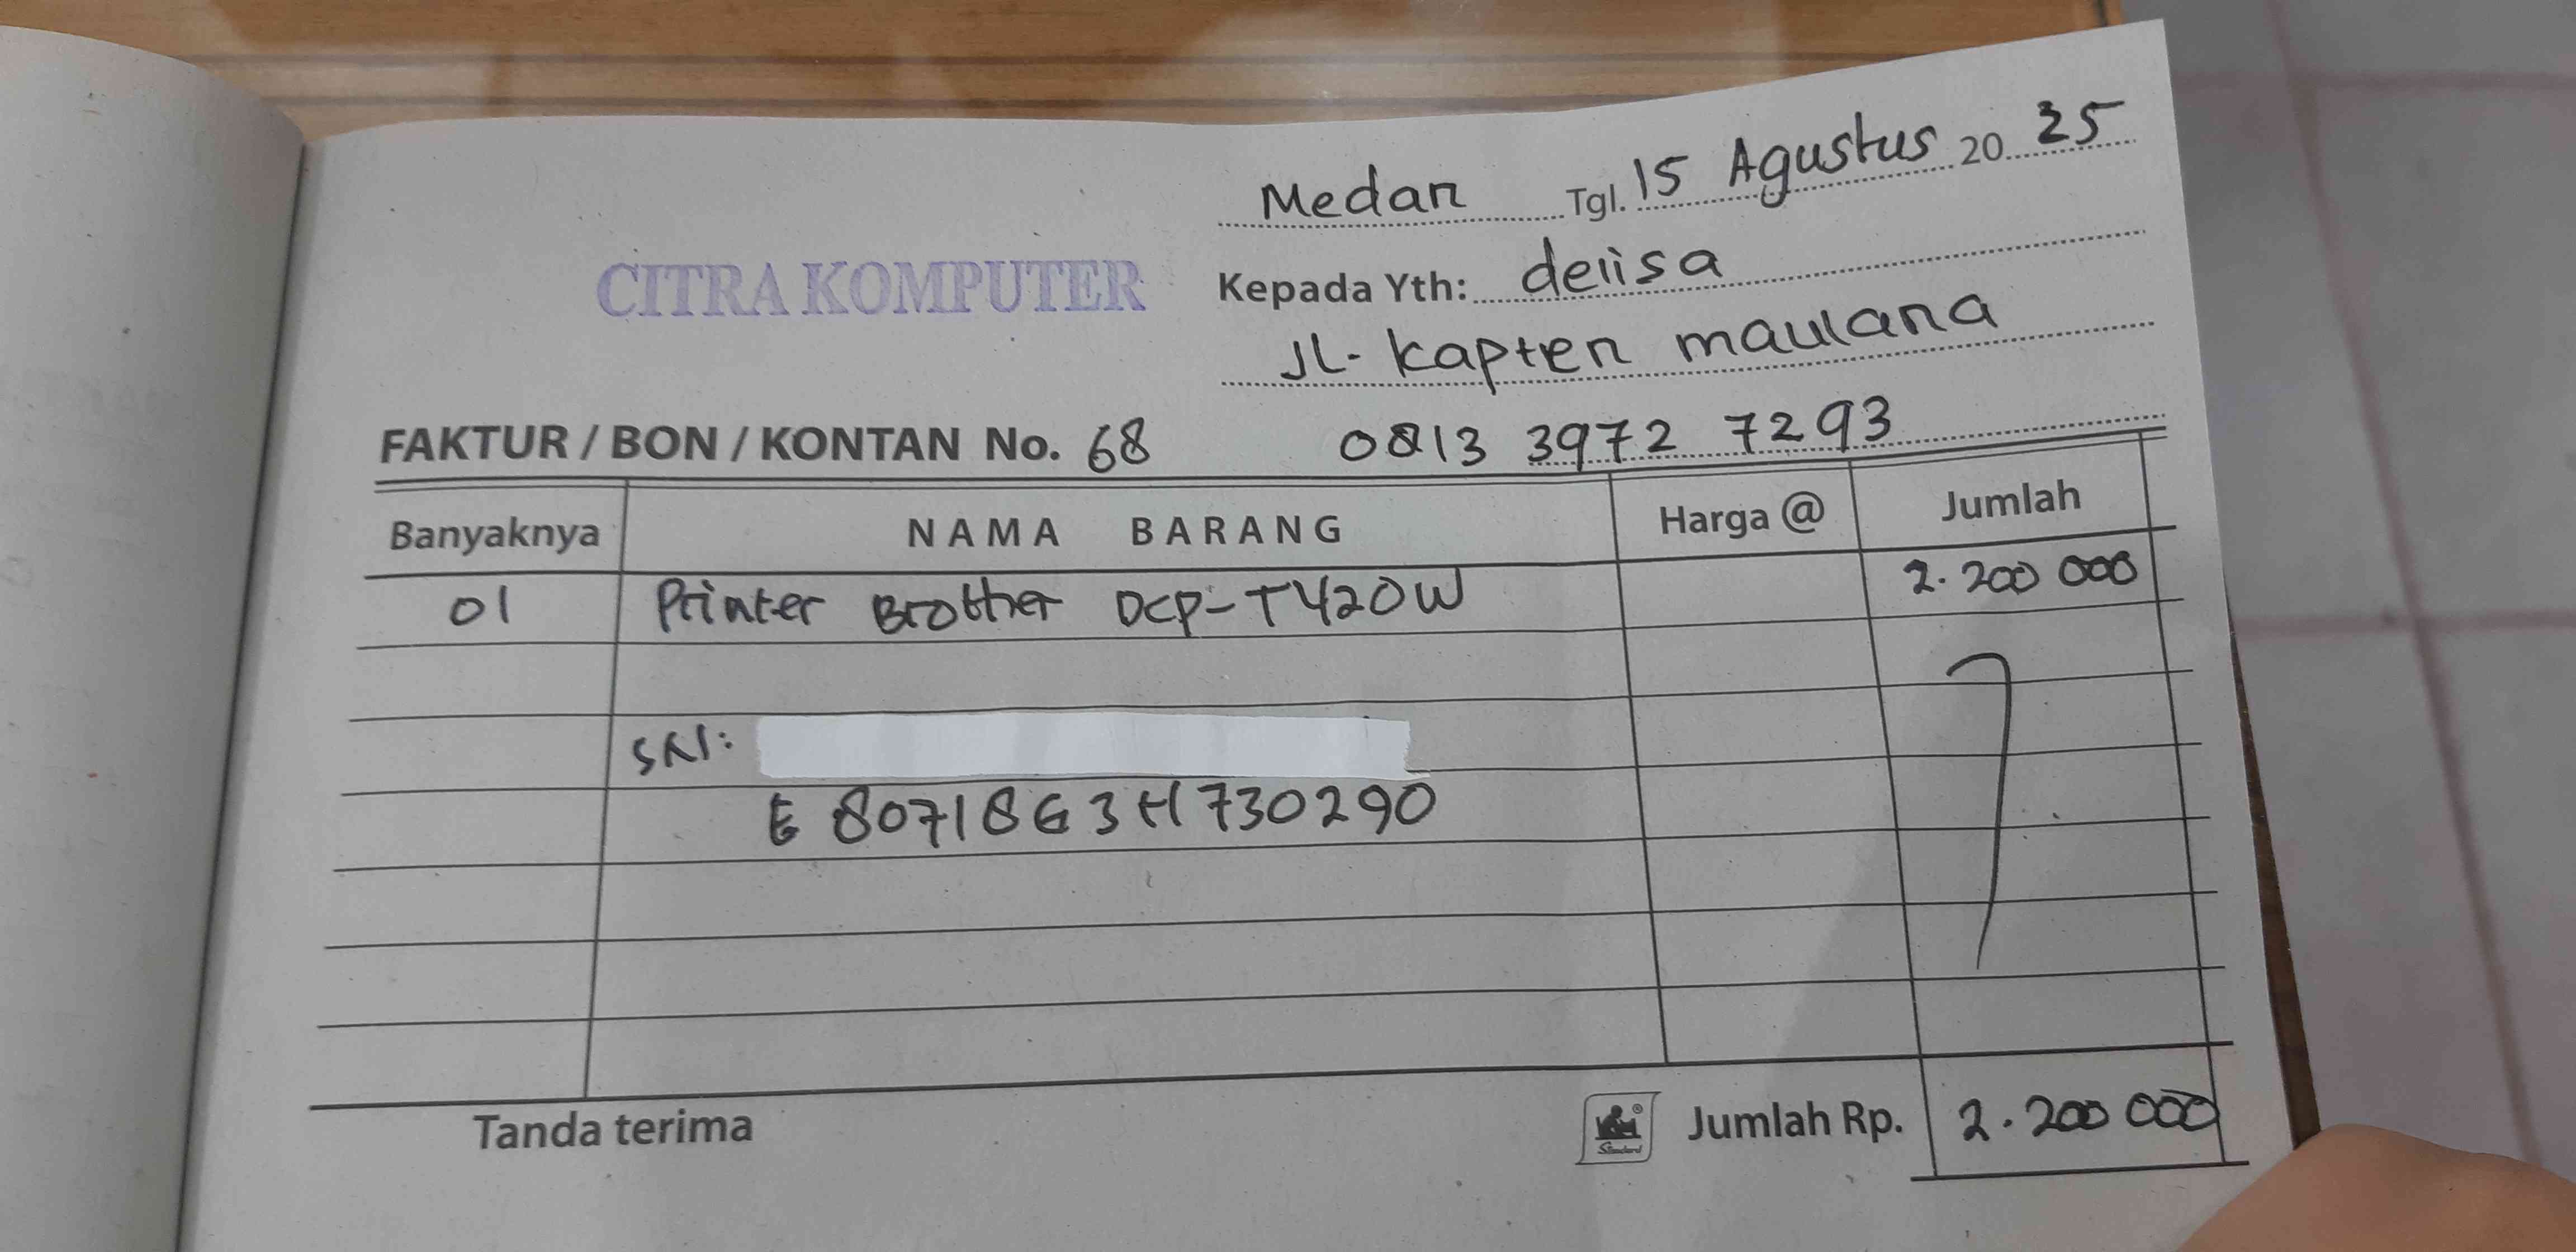 Medan Tgl. 15 Agustus 20 25
CITRA KOMPUTER
Kepada Yth: delisa
JL. Kapten maulana
FAKTUR / BON / KONTAN No. 68
0813 3972 7293
Banyaknya NAMA BARANG Harga @ Jumlah
01 Printer Brother DCP-T420W 2.200 000
SN:
E 80718G3H730290
Tanda terima
Standard
Jumlah Rp. 2.200 000